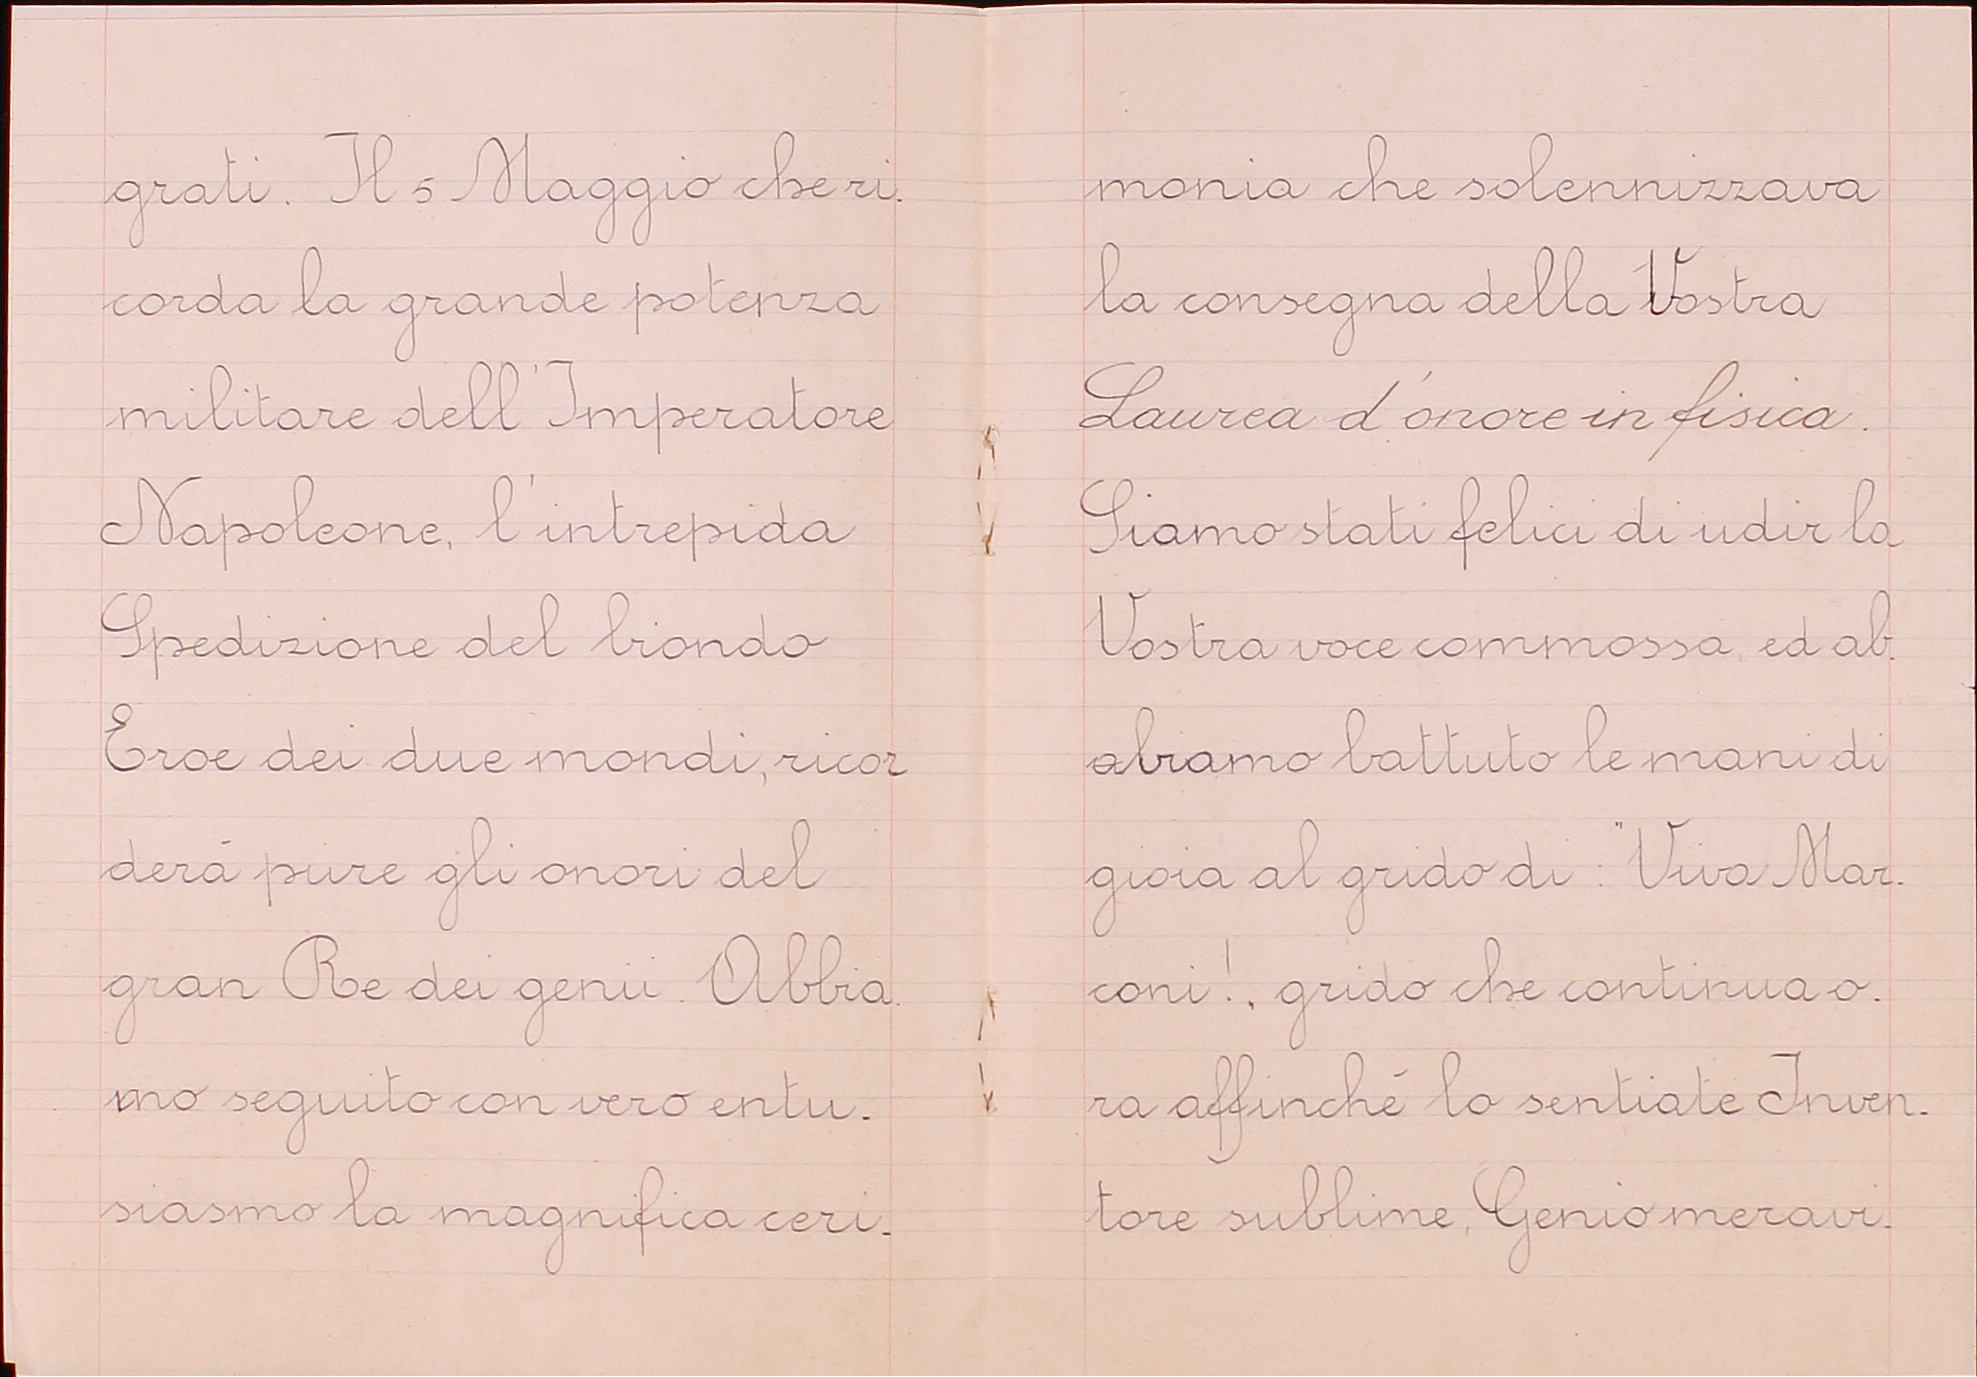 grati. Il 5 Maggio che ri-
corda la grande potenza
militare dell'Imperatore
Napoleone, l'intrepida
Spedizione del biondo
Eroe dei due mondi, ricor
derà pure gli onori del
gran Re dei genii. Abbia-
mo seguito con vero entu-
siasmo la magnifica ceri-
monia che solennizzava
la consegna della Vostra
Laurea d'onore in fisica.
Siamo stati felici di udir la
Vostra voce commossa, ed ab-
abiamo battuto le mani di
gioia al grido di: "Viva Mar-
coni!, grido che continua o-
ra affinché lo sentiate Inven-
tore sublime, Genio meravi-